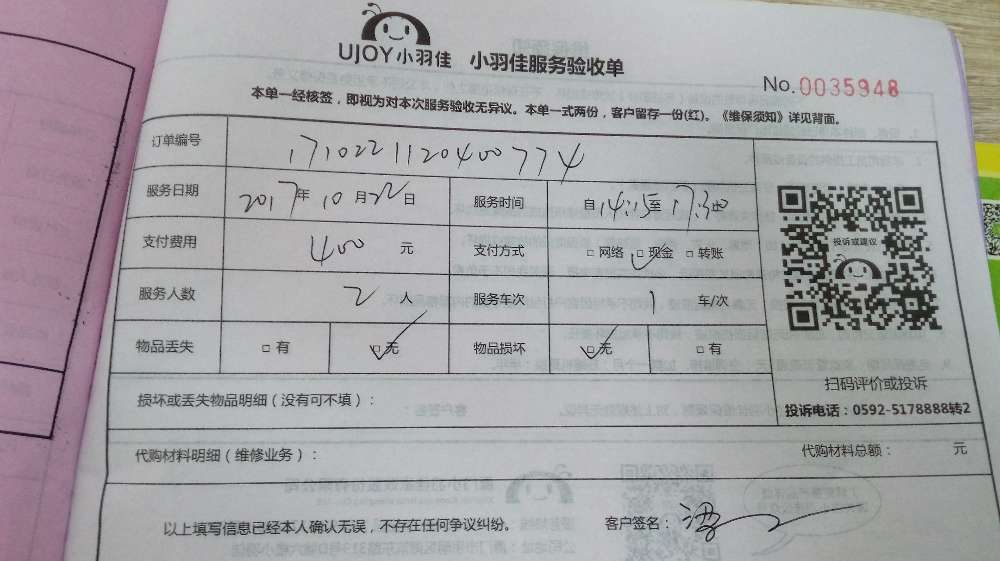 UJOY小羽佳 小羽佳服务验收单
No.0035948
本单一经核签，即视为对本次服务验收无异议。本单一式两份，客户留存一份(红)。《维保须知》详见背面。
订单编号 1710221120400774
服务日期 2017年10月22日 服务时间 自14:15至17:30
支付费用 400 元 支付方式 □网络 □现金 □转账
服务人数 2 人 服务车次 1 车/次
物品丢失 □有 □无 物品损坏 □无 □有
投诉或建议
扫码评价或投诉
投诉电话：0592-5178888转2
损坏或丢失物品明细（没有可不填）：
代购材料明细（维修业务）： 代购材料总额： 元
以上填写信息已经本人确认无误，不存在任何争议纠纷。 客户签名：